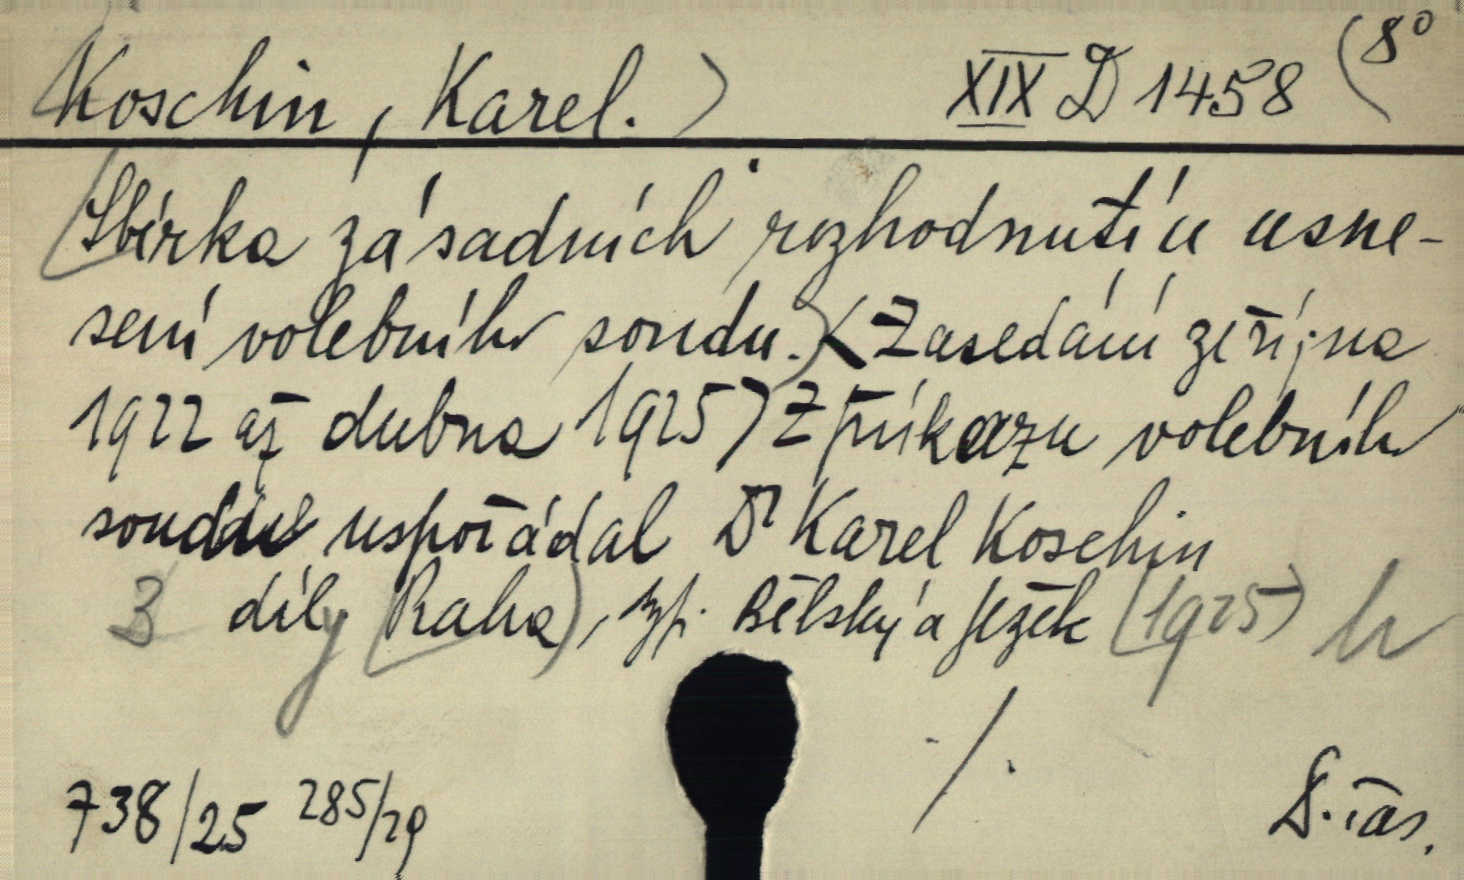 Koschin, Karel. XIX D 1458 8°
Sbírka zásadních rozhodnutí a usne-
sení volebního soudu. (Zasedání z října
1922 až dubna 1925) Z příkazu volebního
soudu uspořádal Dr Karel Koschin
3 díly Praha, typ. Bělský a Ježek 1925
./.
738/25 285/29